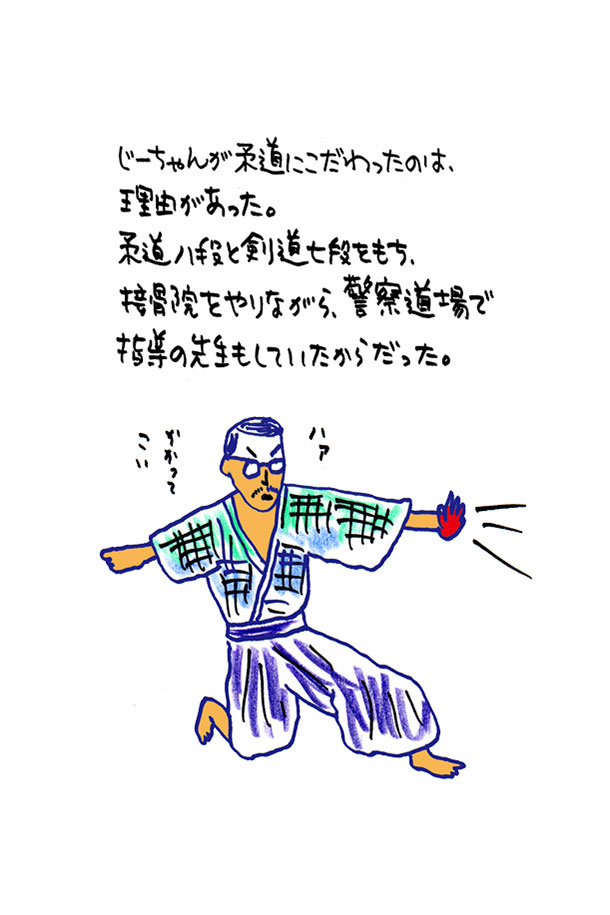 じーちゃんが柔道にこだわったのは、
理由があった。
柔道八段と剣道七段をもち、
接骨院をやりながら、警察道場で
指導の先生もしていたからだった。
ハァ
かかって
こい